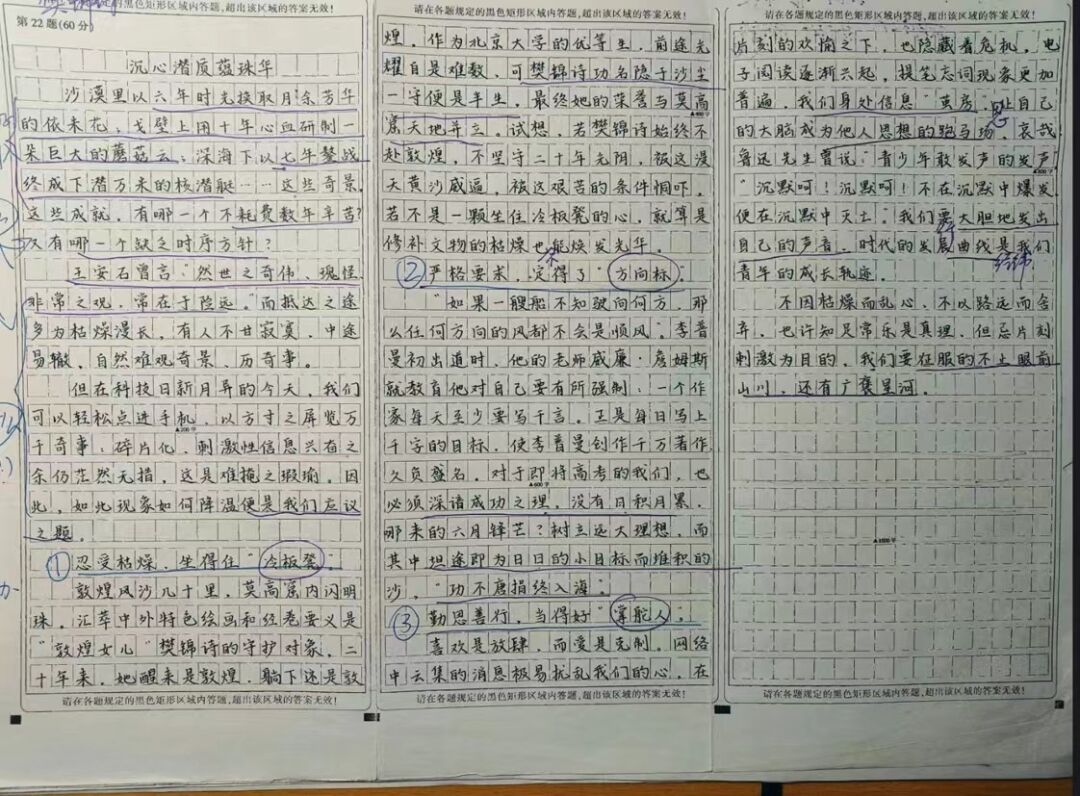 请在各题规定的黑色矩形区域内答题,超出该区域的答案无效!
第22题(60分)
沉心潜质蕴珠华
沙漠里以六年时光换取月余芳华
的依米花,戈壁上用十年心血研制一
朵巨大的蘑菇云,深海下以七年鏖战
终成下潜万米的核潜艇……这些奇景,
这些成就,有哪一个不耗费数年辛苦?
又有哪一个缺乏时序方针?
王安石曾言"然世之奇伟、瑰怪、
非常之观,常在于险远。"而抵达之途
多为枯燥漫长,有人不甘寂寞,中途
易辙,自然难观奇景、历奇事。
但在科技日新月异的今天,我们
可以轻松点进手机,以方寸之屏览万
千奇事,碎片化、刺激性信息兴奋之
余仍茫然无措,这是难掩之瑕瑜,因
此,如此现象如何降温便是我们应议
之题。
① 忍受枯燥,坐得住"冷板凳"。
敦煌风沙几十里,莫高窟内闪明
珠,汇萃中外特色绘画和经卷要义是
"敦煌女儿"樊锦诗的守护对象,二
十年来,她醒来是敦煌,躺下还是敦
请在各题规定的黑色矩形区域内答题,超出该区域的答案无效!
请在各题规定的黑色矩形区域内答题,超出该区域的答案无效!
煌,作为北京大学的优等生,前途光
耀自是难数,可樊锦诗功名隐于沙尘
一守便是半生,最终她的荣誉与莫高
窟天地并立。试想,若樊锦诗始终不
赴敦煌,不坚守二十年光阴,被这漫
天黄沙威逼,被这艰苦的条件恫吓,
若不是一颗坐住冷板凳的心,就算是
修补文物的枯燥也能焕发光华。
② 严格要求,定得了"方向标"。
"如果一艘船不知驶向何方,那
么任何方向的风都不会是顺风。"李普
曼初出道时,他的老师威廉·詹姆斯
就教育他对自己要有所强制:一个作
家每天至少要写千言。正是每日写上
千字的目标,使李普曼创作千万著作,
久负盛名。对于即将高考的我们,也
必须深谙成功之理,没有日积月累,
哪来的六月锋芒?树立远大理想,而
其中坦途即为日日的小目标而堆积的
沙,"功不唐捐终入海。"
③ 勤思善行,当得好"掌舵人"。
喜欢是放肆,而爱是克制。网络
中云集的消息极易扰乱我们的心,在
请在各题规定的黑色矩形区域内答题,超出该区域的答案无效!
请在各题规定的黑色矩形区域内答题,超出该区域的答案无效!
片刻的欢愉之下,也隐藏着危机,电
子阅读逐渐兴起,提笔忘词现象更加
普遍,我们身处信息"茧房",让自己
的大脑成为他人思想的跑马场,哀哉!
鲁迅先生曾说:青少年敢发声的发声,
"沉默呵!沉默呵!不在沉默中爆发,
便在沉默中灭亡。"我们要大胆地发出
自己的声音,时代的发展曲线是我们
青年的成长轨迹。
不因枯燥而乱心,不以路远而舍
弃,也许知足常乐是真理,但忌片刻
刺激为目的,我们要征服的不止眼前
山川,还有广袤星河。
请在各题规定的黑色矩形区域内答题,超出该区域的答案无效!